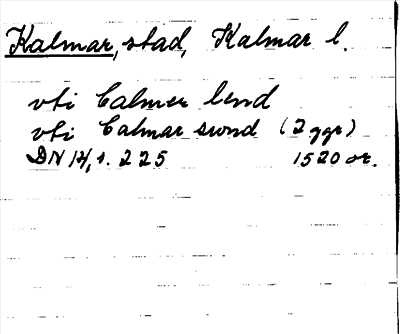 Kalmar, stad, Kalmar l.
vti Calmer lend
vti Calmar swnd (2 ggr)
DN 14, s. 225 1520 or.